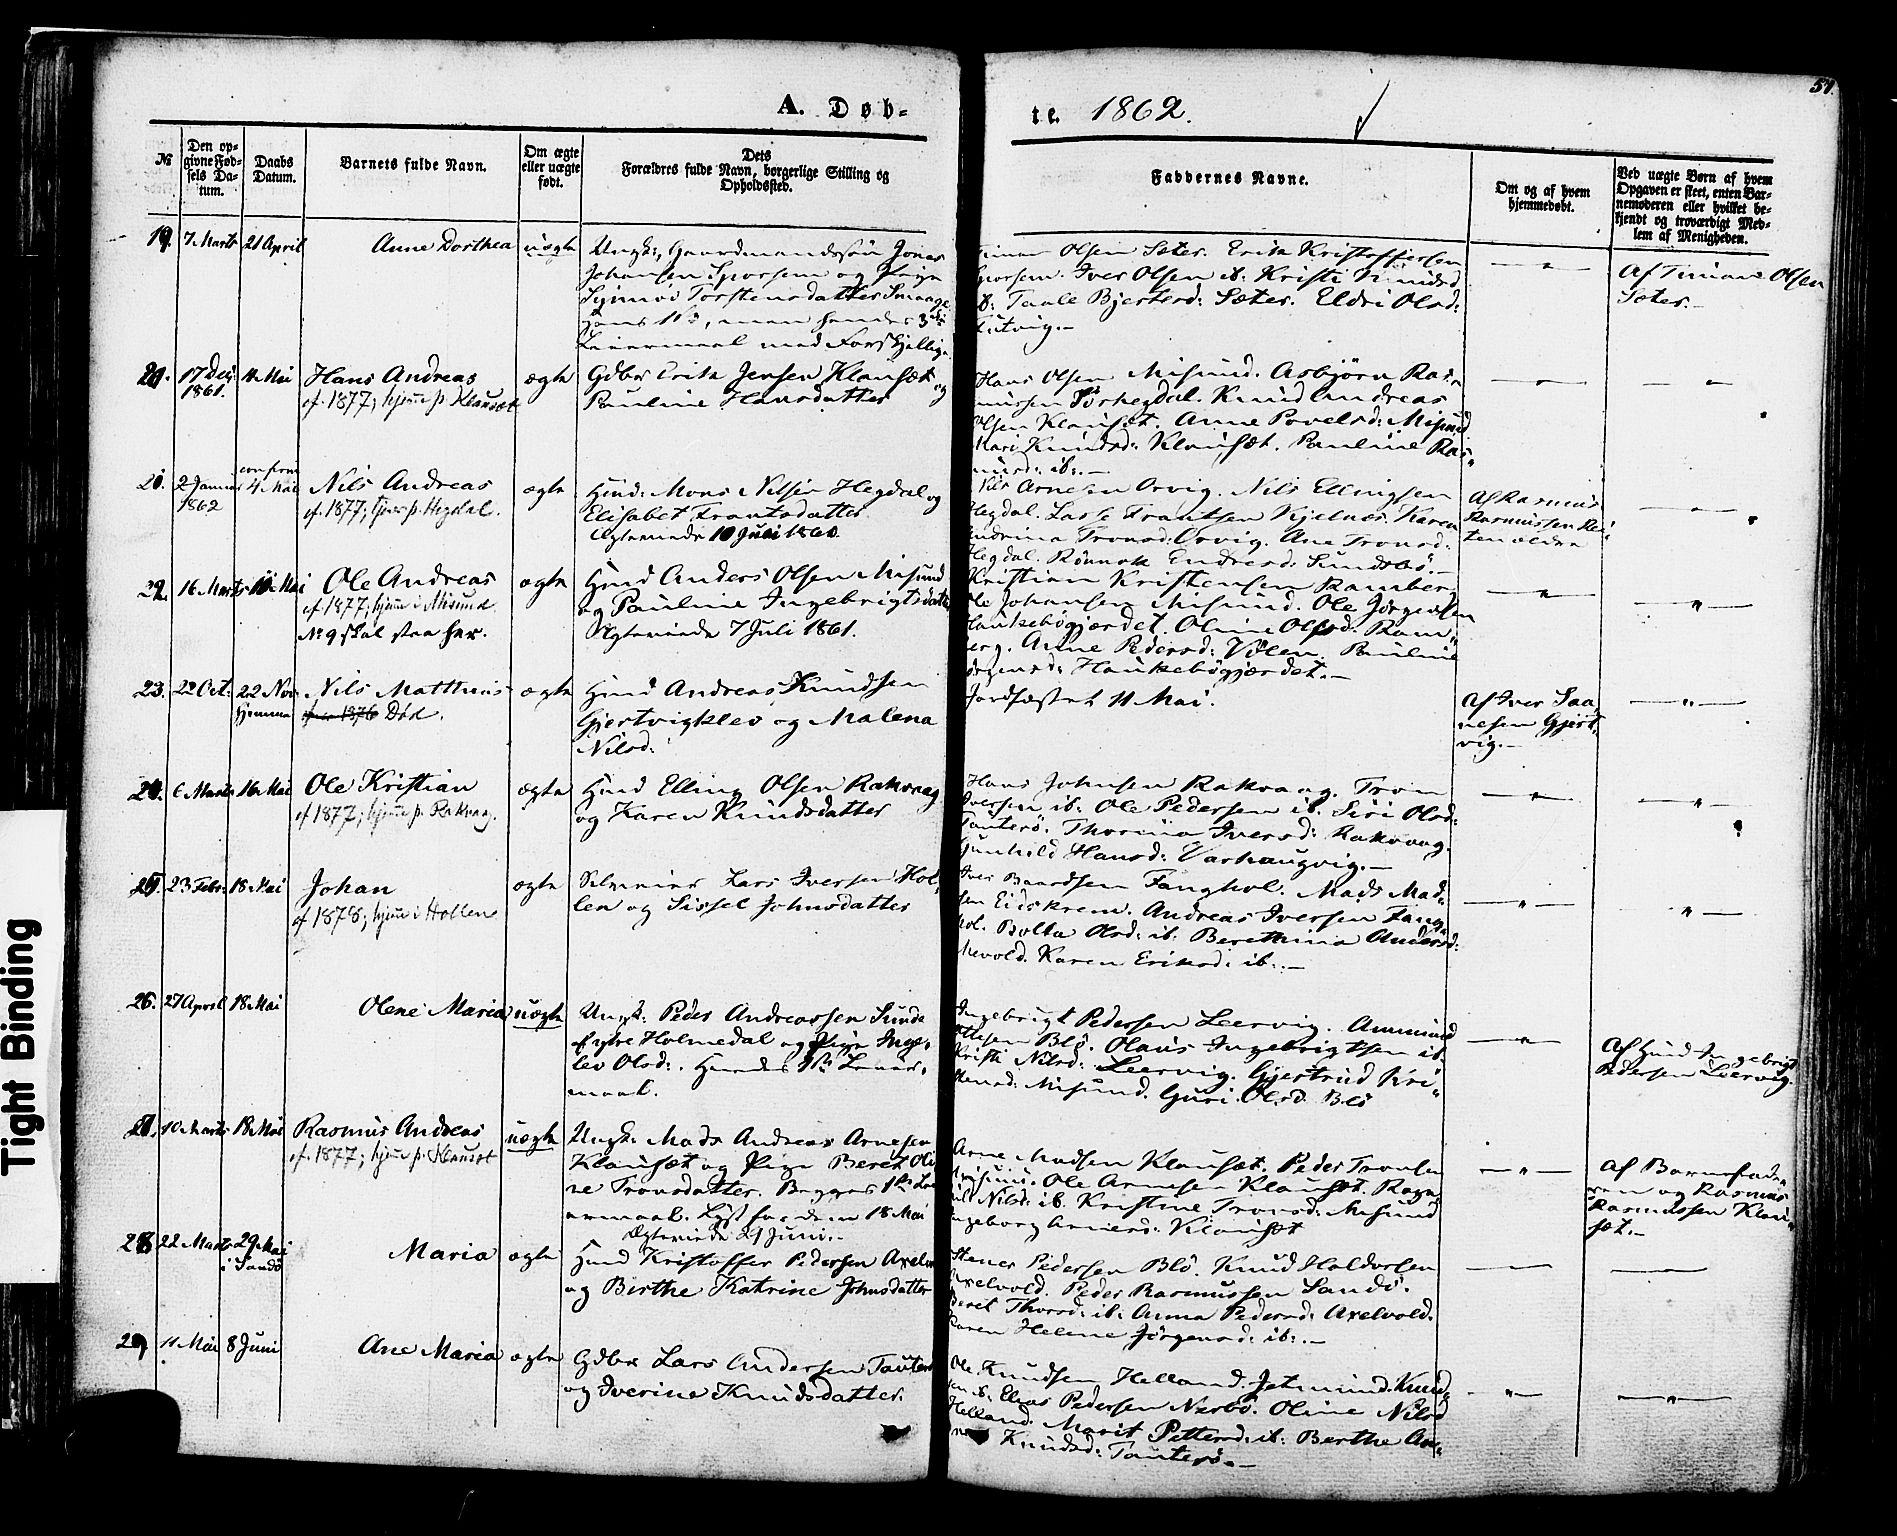 57.
A. Døb-
te. 1862.
№
Den op-
givne Fød-
sels Da-
tum.
Daabs
Datum.
Barnets fulde Navn.
Om ægte
eller uægte
født.
Dets
Forældres fulde Navn, borgerlige Stilling og
Opholdssted.
Faddernes Navne.
Om og af hvem
hjemmedøbt.
Ved uægte Børn af hvem
Opgaven er skeet, enten Bar-
nemoderen eller hvilket be-
kjendt og troværdigt Med-
lem af Menigheden.
19. 7 Marts 21 April Anne Dorthea uægte
Ungk: Gaardmandssøn Jonas
Johansen Sporsem og Pige
Synnøi Torstensdatter
Leiermaal med Forskjellige
Olsen Sæter. Erik Kristoffersen
Sporsem. Iver Olsen ib. Kristi
Sæter. Eldri Olsd:
Af Timian Olsen
Sæter.-
20. 17 Dec:
1861. 11 Mai Hans Andreas
cf. 1877; hjem: p. Klausæt
ægte
Gdbr Erik Jensen Klausæt og
Pauline Hansdatter
Hans Olsen Misund. Asbjørn Ras-
mussen Sørhegdal. Knud Andreas
Olsen Klausæt. Anne Povelsd: Misund
Mari Knudsd: Klausæt. Pauline Ras-
musd: ib:.-
21. 2 Januar
1862
confirm
4 Mai
Nils Andreas
cf. 1877; hjem: p. Hegdal.
ægte
Huusm: Mons Nilsen Hegdal og
Elisabet Frantsdatter
Ægteviede 10 Juli 1860
Nils Arnesen Orvig. Nils Ellingsen
Hegdal. Lasse Frantsen Kjelnæs. Karen
Andrina Tronsd: Orvig. Ane Tronsd:
Hegdal. Rønnok Endresd: Sundsbø.-
Af Rasmus
Rasmussen Rei-
ten ældre
22. 16 Marts 11 Mai Ole Andreas
cf. 1877; hjem: i Misund
No 9 skal staa her.
ægte
Huusm Anders Olsen Misund
og Pauline Ingebrigtsdatter
Ægteviede 7 Juli 1861.
Kristian Kristensen Ramberg
Ole Johansen Misund. Ole Jørgensen
Haukebøgjærdet. Oline Olsd. Ram-
berg. Anne Pedersd: Vølen. Pauline
Jørgensd: Haukebøgjærdet.-
23. 22 Oct: 22 Nov
hjemme
Nils Matthias
1876 Død.
ægte
Huusm Andreas Knudsen
Gjertvigklev og Malena
Nilsd:
Jordfæstet 11 Mai.
Af Iver Saa-
nesen Gjert-
vig.-
24. 6 Marts 16 Mai Ole Kristian
cf 1877; hjem: p. Rakvaag.
ægte
Huusm Elling Olsen Rakvaag
og Karen Knudsdatter
Hans Johnsen Rakvaag. Tron
Iversen ib: Ole Pedersen ib. Siri Olsd:
Tauterø. Thorina Iversd: Rakvaag.
Gunhild Hansd: Varhaugvig.-
25. 23 Febr: 18 Mai Johan
cf 1878; hjem: i Hollen
ægte
Selveier Lars Iversen Hol-
len og Sissel Johnsdatter
Iver Baardsen Tanghol. Mads Mad-
sen Eidskrem. Andreas Iversen Tang-
hol. Bolta Olsd: ib: Berethina Andersd:
Mevold. Karen Eriksd: ib:.-
26. 27 April 18 Mai Olene Maria uægte
Ungk: Peder Andreassen Sunde
f. ytre Holmedal og Pige Inge-
lev Olsd:. Hendes 1ste Leier-
maal.
Ingebrigt Pedersen Leervig. Ammund
Blø. Olaus Ingebrigtsen ib
Kristi Nilsd: Leervig. Gjertrud Kri-
stensd: Misund. Guri Olsd. Blø
Af Huusm Ingebrigt
Pedersen Leervig.
27. 10 Marts 18 Mai Rasmus Andreas
cf. 1877; hjem: p. Klausæt
uægte
Ungk: Mads Andreas Arnesen
Klausæt og Pige Beret Oli-
ne Tronsdatter. Begges 1ste Lei-
ermaal. Lyst for dem 18 Mai
Ægteviede 21 Juni.-
Arne Madsen Klausæt. Peder Tronsen
Misund. Ole Arnesen Klausæt. Ragn-
Nilsd: ib. Kristine Tronsd: Misund
Ingeborg Arnesd: Klausæt
Af Barnefade-
ren og Rasmus
Rasmussen Klau-
sæt.-
28 22 Marts 29 Mai
i Sandø
Maria ægte
Huusm Kristoffer Pedersen Axelvold
og Birthe Katrine Johnsdatter
Stener Pedersen Blø. Knud Haldorsen
Axelvold. Peder Rasmussen Sandø.
Beret Thorsd: ib: Anna Pedersd: Axelvold.
Karen Helene Jørgensd: ib:.-
29. 11 Mai 8 Juni Ane Maria ægte
Gdbr Lars Andersen Tauterø
og Iverine Knudsdatter.
Ole Knudsen Helland. Jetmund Knud-
sen ib. Elias Pedersen Nærbø. Oline Nilsd
Helland. Marit Pettersd: ib: Berthe An-
Knudsd: Tauterø.-
Tight Binding